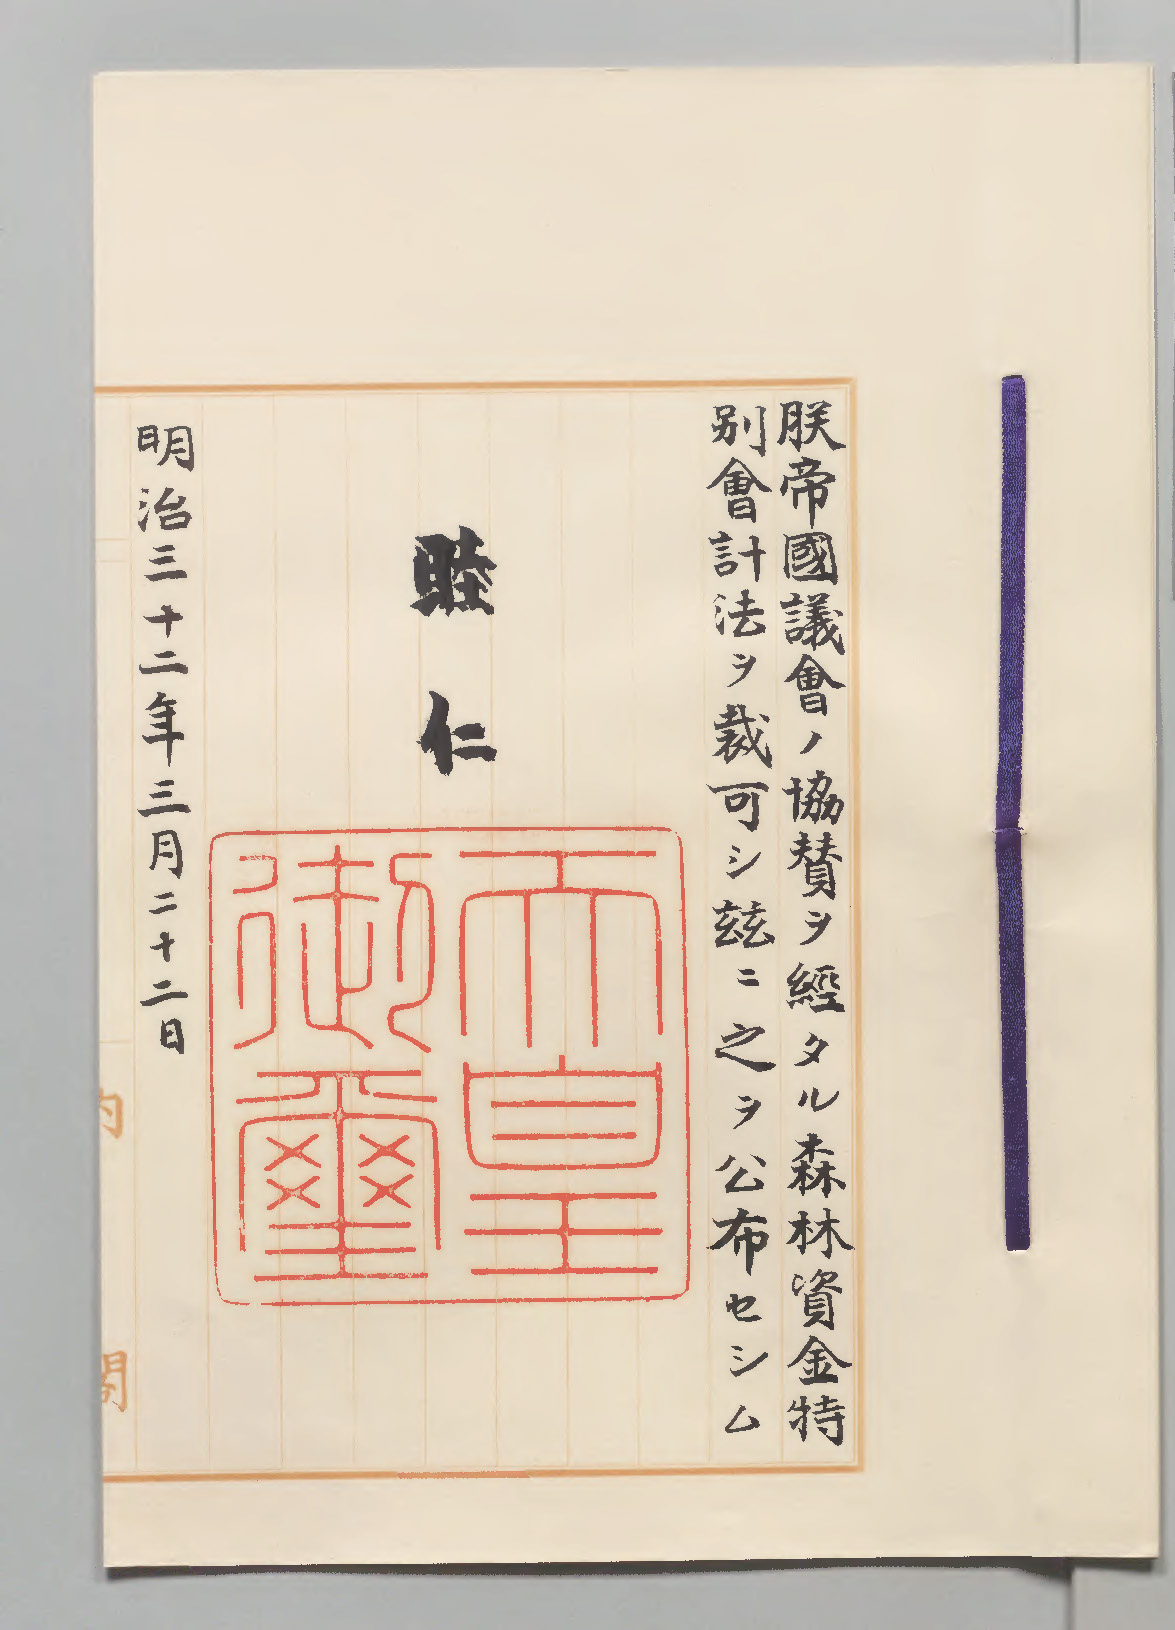 朕帝國議會ノ協賛ヲ經タル森林資金特
別會計法ヲ裁可シ茲ニ之ヲ公布セシム
睦仁
天皇
御璽
明治三十二年三月二十二日
内閣